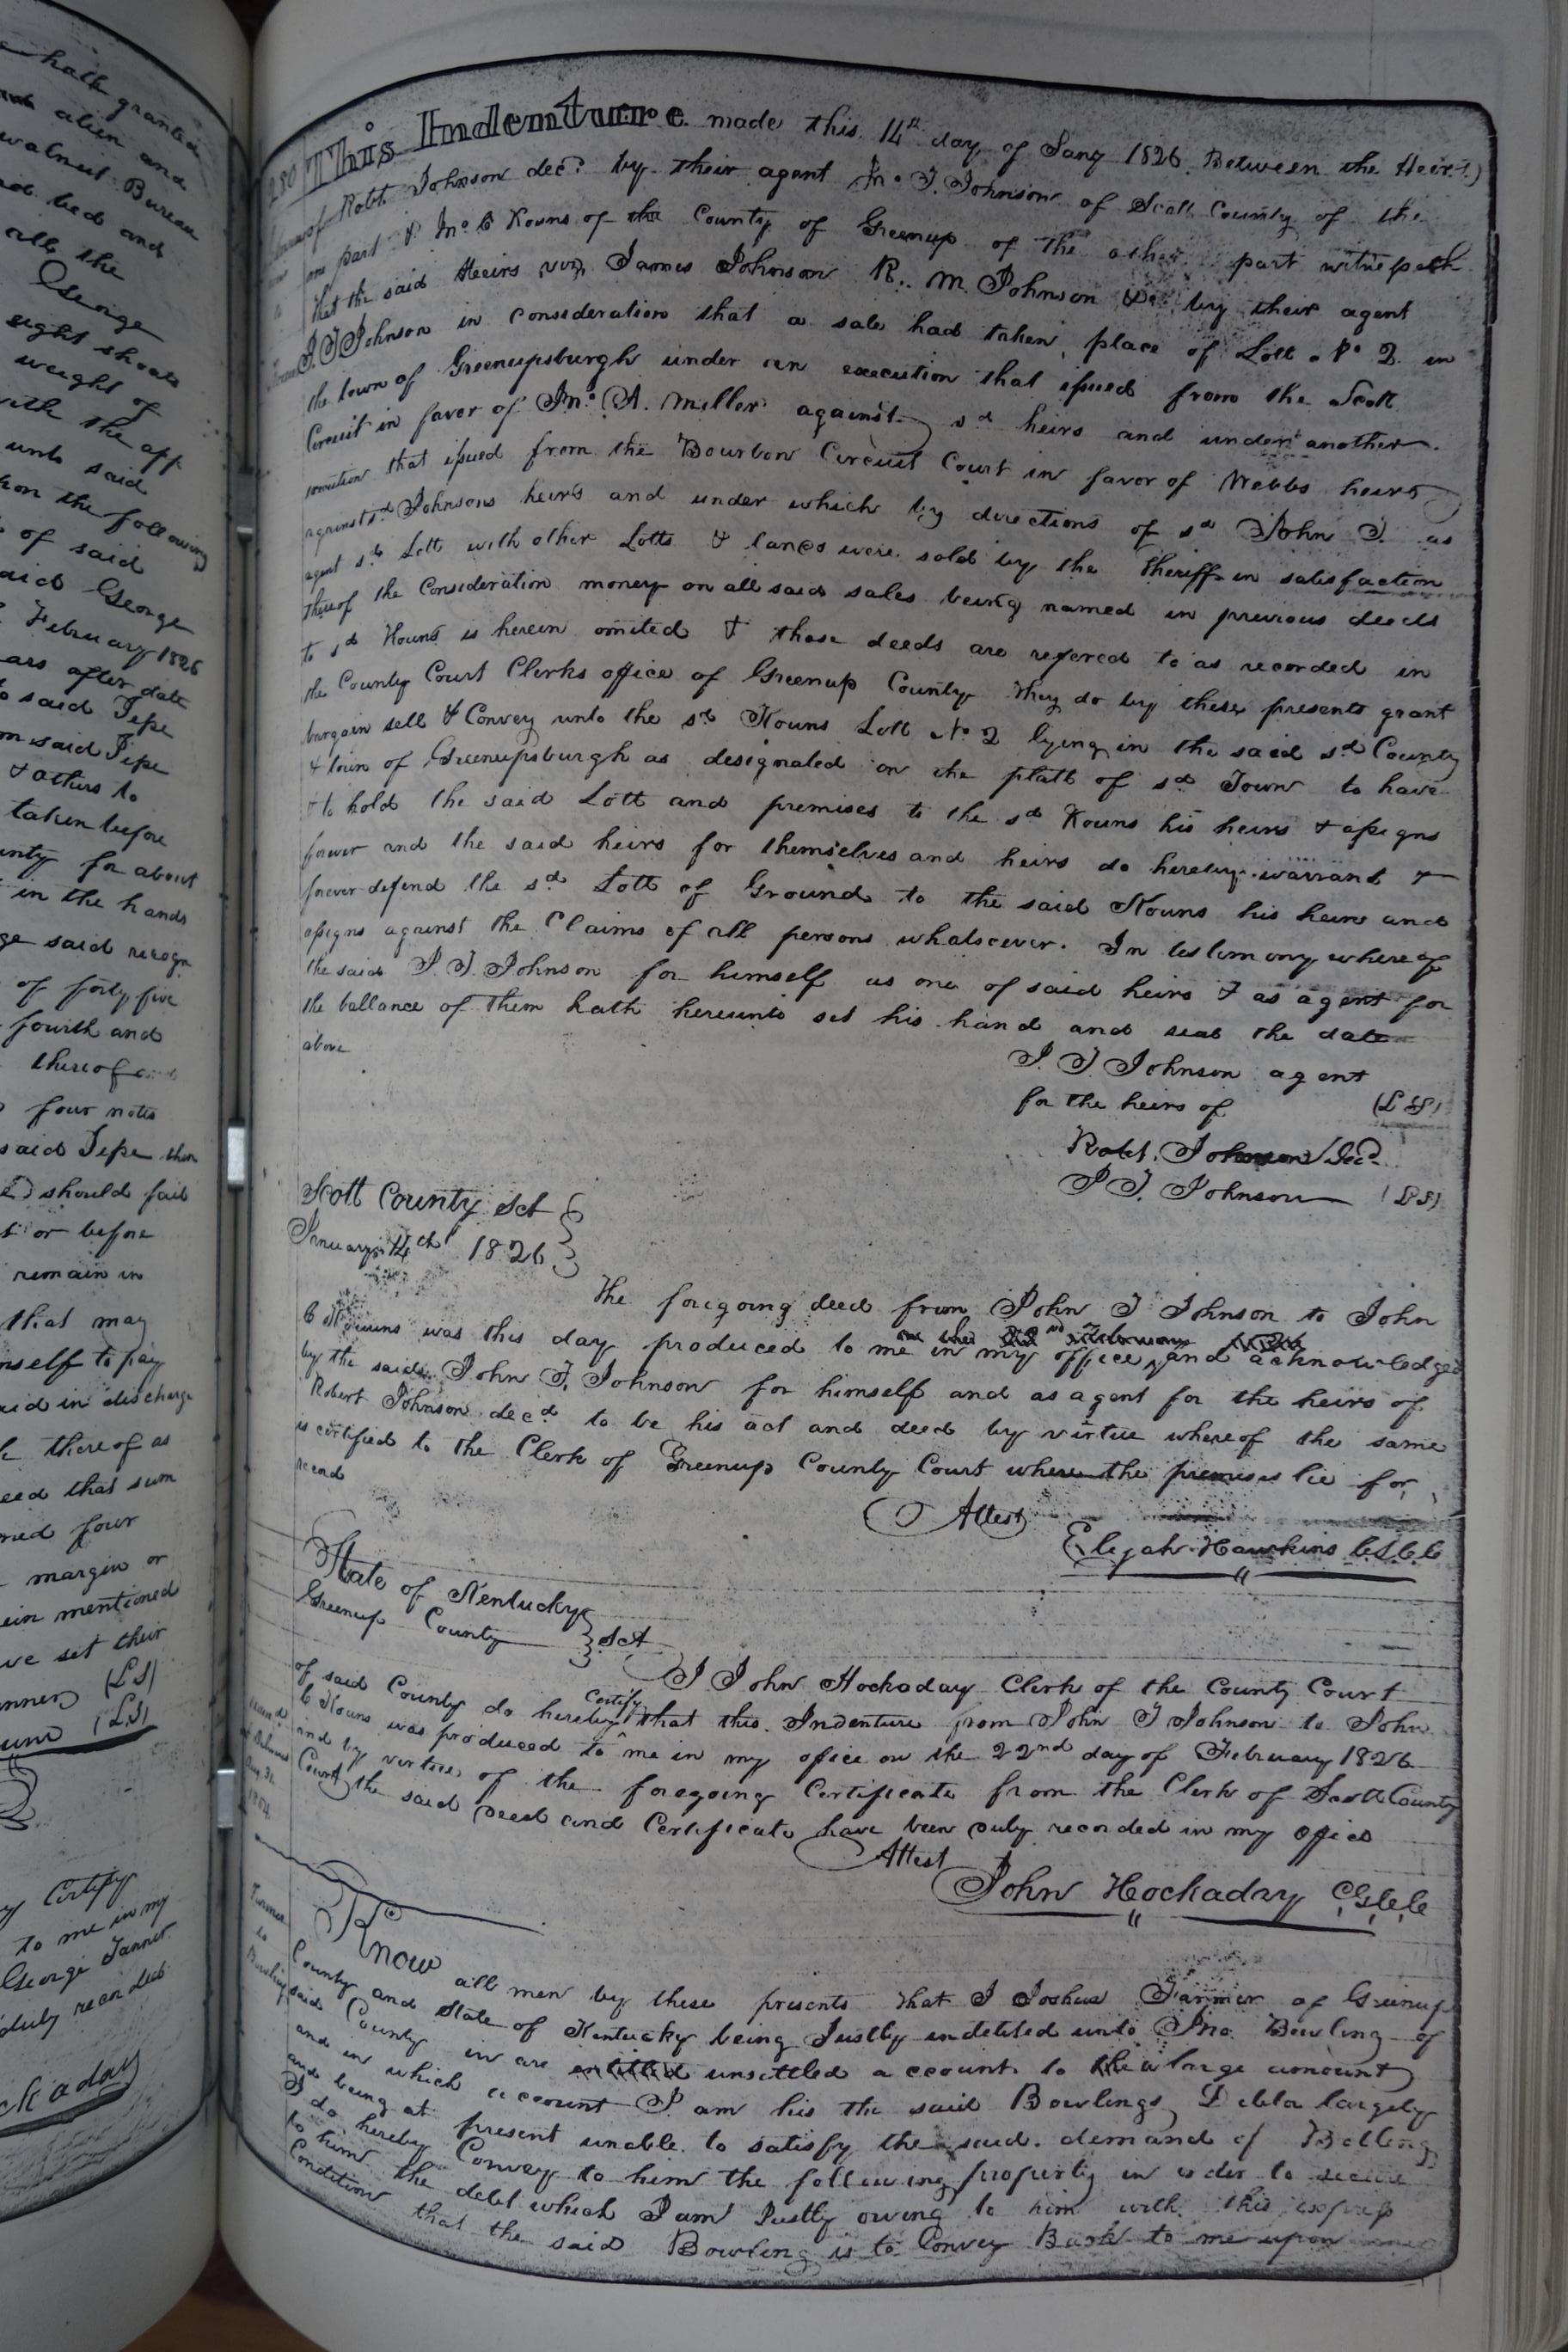 hath granted
alien and
walnut Bureau
bed and
all the
George
eight shoats
weight of
with the app
unto said
upon the following
of said
said George
February 1826
ears after date
to said Jesse
said Jesse
& others to
taken before
unty for about
in the hands
said recogn
of forty five
fourth and
thereof
four notes
said Jesse then
should fail
or before
remain in
that may
himself to pay
aid in discharge
thereof as
eed that sum
four
margin or
ein mentioned
ve set their
(LS)
(LS)
Certify
to me in my
George Tanner
duly recorded
ckaday
280 This Indenture made this 14th day of Jany 1826 Between the Heirs
of Robt Johnson decd by their agent Jno T. Johnson of Scott County of the
one part & Jno C Kouns of the County of Greenup of the other part witnesseth
that the said Heirs viz James Johnson R. M. Johnson &c by their agent
J. T Johnson in consideration that a sale had taken place of Lott No 2 in
the town of Greenupsburgh under an execution that issued from the Scott
Circuit in favor of Jno A. Miller against sd heirs and under another
that issued from the Bourbon Circuit Court in favor of Webbs heirs
against sd Johnsons heirs and under which by directions of sd John T. as
agent sd Lott with other Lotts & lands were sold by the Sheriff in satisfaction
thereof the Consideration money on all said sales being named in previous deeds
to sd Kouns is herein omited & those deeds are refered to as recorded in
the County Court Clerks office of Greenup County They do by these presents grant
bargain sell & Convey unto the sd Kouns Lott No 2 lying in the said sd County
& town of Greenupsburgh as designated on the platt of sd Town to have
& to hold the said Lott and premises to the sd Kouns his heirs & assigns
forever and the said heirs for themselves and heirs do hereby warrant &
forever defend the sd Lott of Ground to the said Kouns his heirs and
assigns against the Claims of all persons whatsoever. In testimony whereof
the said J. T. Johnson for himself as one of said heirs & as agent for
the ballance of them hath hereunto set his hand and seal the date
above
J. T Johnson agent
for the heirs of (LS)
Robt. Johnson Decd
J T. Johnson (LS)
Scott County Sct
January 14th 1826
The foregoing deed from John T Johnson to John
C Kouns was this day produced to me in my office and acknowledged
by the said John T. Johnson for himself and as agent for the heirs of
Robert Johnson decd to be his act and deed by virtue whereof the same
is certified to the Clerk of Greenup County Court where the premises lie for
record
Attest
Elijah Hawkins C S C C
State of Kentucky
Greenup County Sct
I John Hockaday Clerk of the County Court
of said County do hereby Certify that this Indenture from John T Johnson to John
C Kouns was produced to me in my office on the 22nd day of February 1826
and by virtue of the foregoing Certificate from the Clerk of Scott County
Court the said Deed and Certificate have been duly recorded in my office
Attest
John Hockaday C G C C
Farmer
to
Bowling
Know all men by these presents that I Joshua Farmer of Greenup
County and State of Kentucky being Justly indebted unto Jno Bowling of
said County in are unsettled account to the a large amount
and in which account I am his the said Bowlings Debtor largely
and being at present unable to satisfy the said demand of Bolling
I do hereby Convey to him the following property in order to secure
to him the debt which I am Justly owing to him with this express
Condition that the said Bowling is to Convey Back to me upon